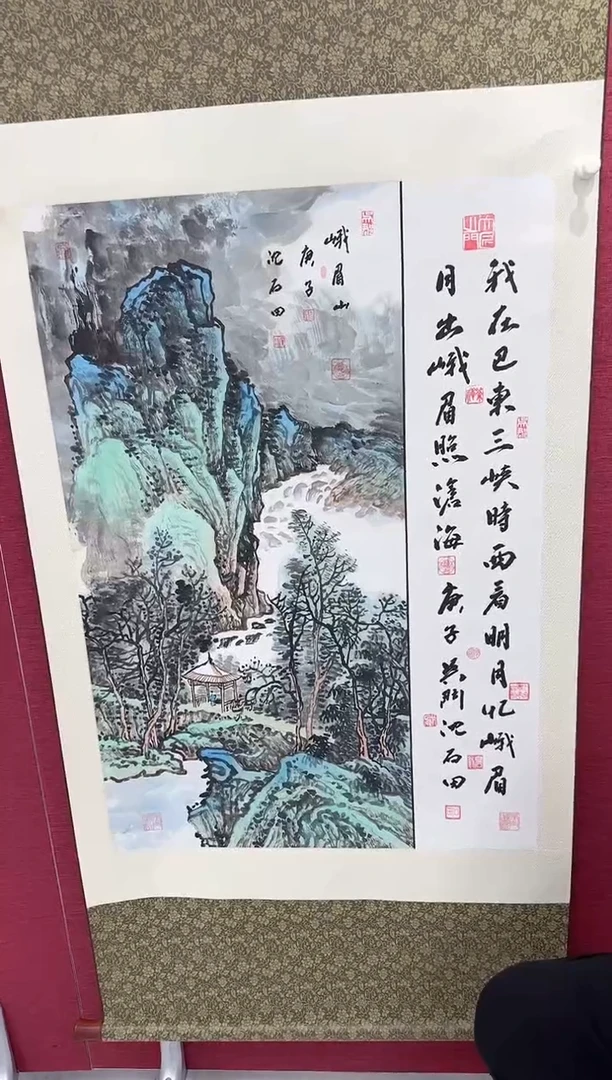 我在巴東三峡時西看明月忆峨眉
月出峨眉照滄海 庚子吴門沈石田
峨眉山
庚子
沈石田